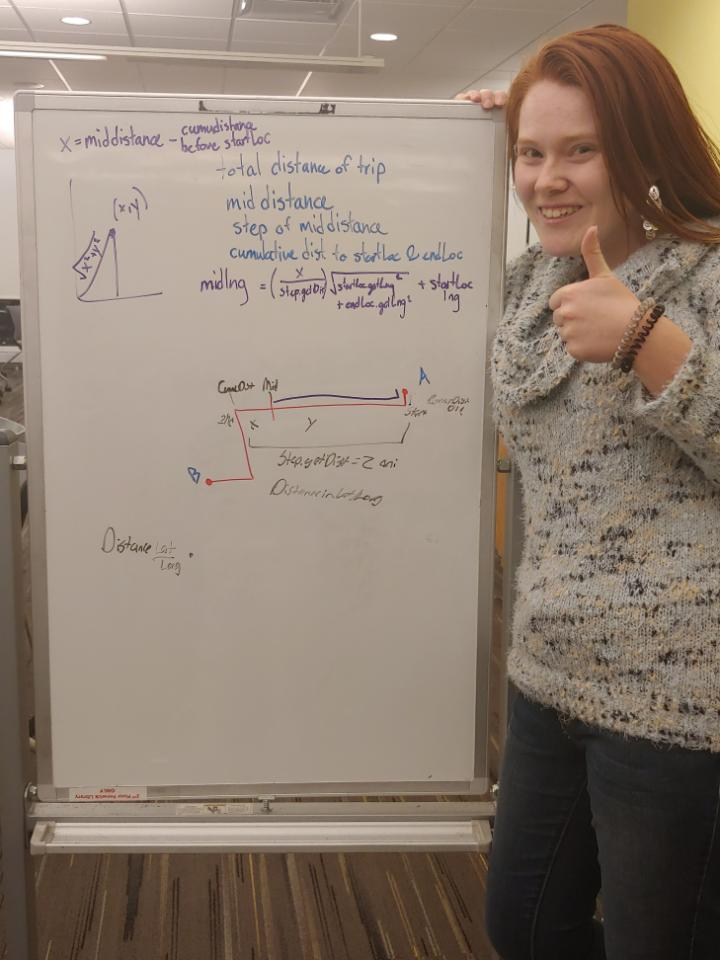 X = middistance - cumudistance
before startLoc
total distance of trip
mid distance
step of middistance
cumulative dist to startLoc & endLoc
(x,y)
√x²+y²
midlng = (x / step.getDis) √startloc.getLng² + endLoc.getLng² + startLoc lng
A
Mid
X
Y
B
Step.getDist = 2 mi
Distance in Lat Long
Distance Lat
Long